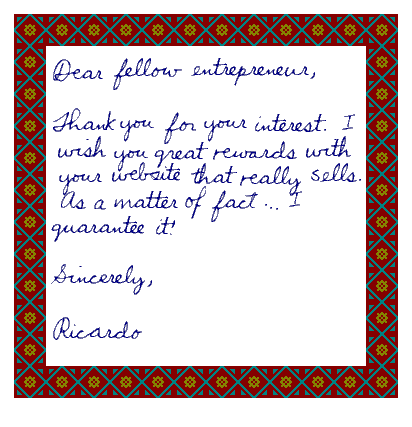 Dear fellow entrepreneur,
Thank you for your interest. I
wish you great rewards with
your website that really sells.
As a matter of fact ... I
guarantee it!
Sincerely,
Ricardo